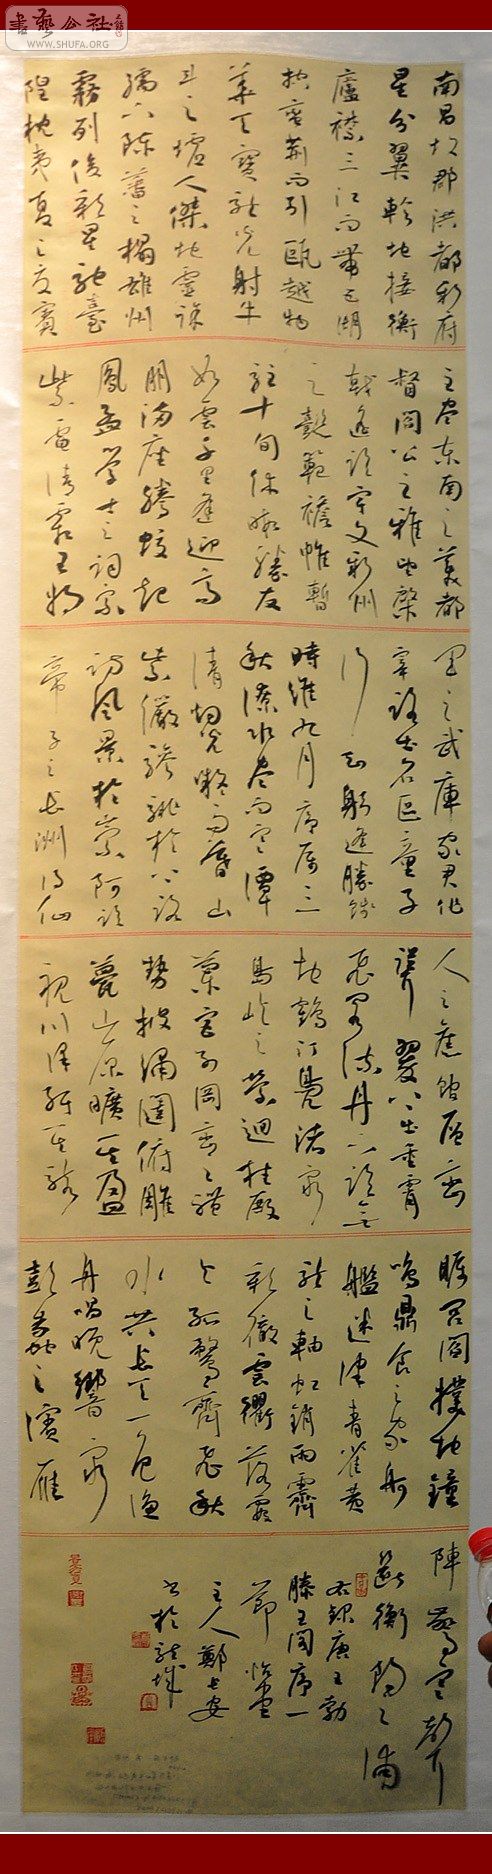 書藝公社
WWW.SHUFA.ORG
南昌故郡洪都新府
星分翼軫地接衡
廬襟三江而帶五湖
控蠻荊而引甌越物
華天寶龍光射牛
斗之墟人傑地靈徐
孺下陳蕃之榻雄州
霧列俊彩星馳臺
隍枕夷夏之交賓
主尽东南之美都
督閻公之雅望棨
戟遙臨宇文新州
之懿範襜帷暫
駐十旬休暇勝友
如雲千里逢迎高
朋滿座騰蛟起
鳳孟學士之詞宗
紫電清霜王將
軍之武庫家君作
宰路出名區童子
何知躬逢勝餞
時維九月序属三
秋潦水尽而寒潭
清烟光凝而暮山
紫儼驂騑於上路
訪風景於崇阿臨
帝子之長洲得仙
人之舊館層巒
聳翠上出重霄
飛閣流丹下臨無
地鶴汀鳧渚窮
島嶼之縈迴桂殿
蘭宮列岡巒之體
勢披繡闥俯雕
甍山原曠其盈
視川澤紆其駭
矚閭閻撲地鐘
鳴鼎食之家舸
艦迷津青雀黃
龍之軸虹銷雨霽
彩徹雲衢落霞
與孤鶩齊飛秋
水共長天一色漁
舟唱晚響窮
彭蠡之濱雁
陣驚寒聲
斷衡陽之浦
右録唐王勃
滕王閣序一
節
主人鄭長安
書於龍城